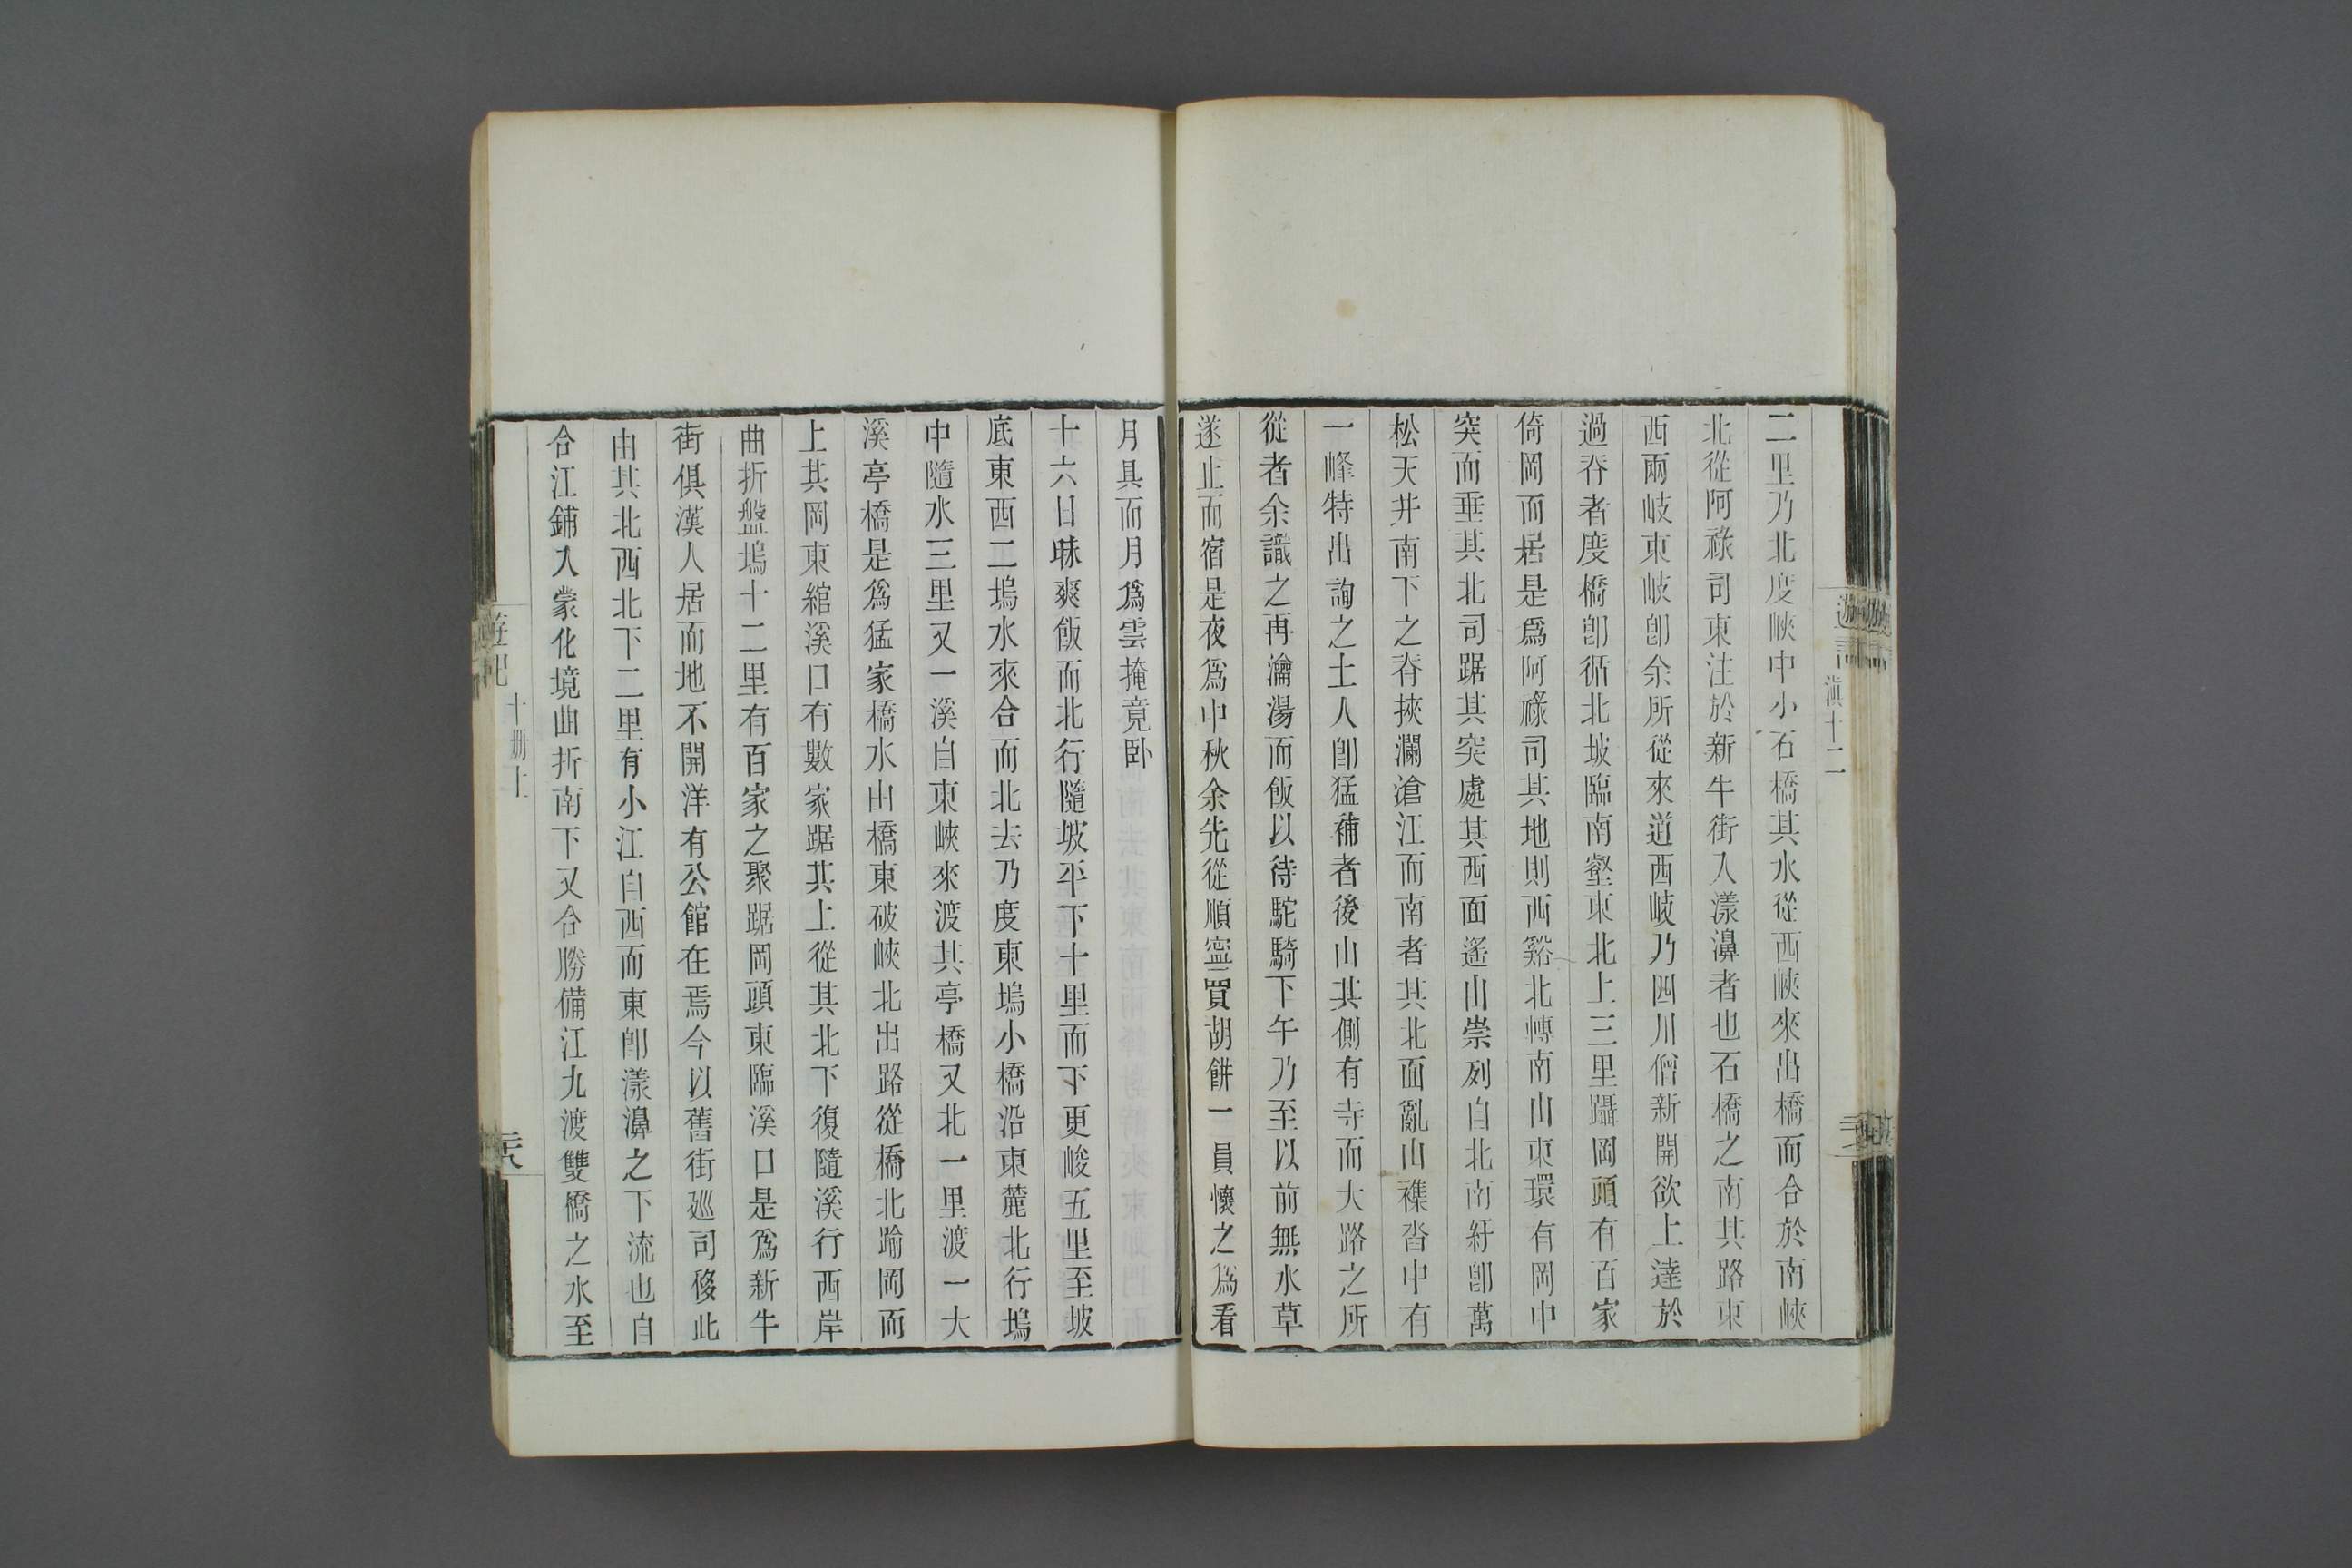 滇十二
二里乃北度峽中小石橋其水從西峽來出橋而合於南峽
北從阿祿司東注於新牛街入漾濞者也石橋之南其路東
西兩岐東岐卽余所從來道西岐乃四川僧新開欲上達於
過脊者度橋卽循北坡臨南壑東北上三里躡岡頭有百家
倚岡而居是爲阿祿司其地則西谿北轉南山東環有岡中
突而垂其北司踞其突處其西面遙山崇列自北南紆卽萬
松天井南下之脊挾瀾滄江而南者其北面亂山襍沓中有
一峰特出詢之土人卽猛補者後山其側有寺而大路之所
從者余識之再瀹湯而飯以待駝騎下午乃至以前無水草
遂止而宿是夜爲中秋余先從順寧買胡餅一員懷之爲看
月具而月爲雲掩竟卧
十六日昧爽飯而北行隨坡平下十里而下更峻五里至坡
底東西二塢水來合而北去乃度東塢小橋沿東麓北行塢
中隨水三里又一溪自東峽來渡其亭橋又北一里渡一大
溪亭橋是爲猛家橋水由橋東破峽北出路從橋北踰岡而
上其岡東綰溪口有數家踞其上從其北下復隨溪行西岸
曲折盤塢十二里有百家之聚踞岡頭東臨溪口是爲新牛
街俱漢人居而地不開洋有公館在焉今以舊街廵司移此
由其北西北下二里有小江自西而東卽漾濞之下流也自
合江鋪入蒙化境曲折南下又合勝備江九渡雙橋之水至
遊記
十冊上